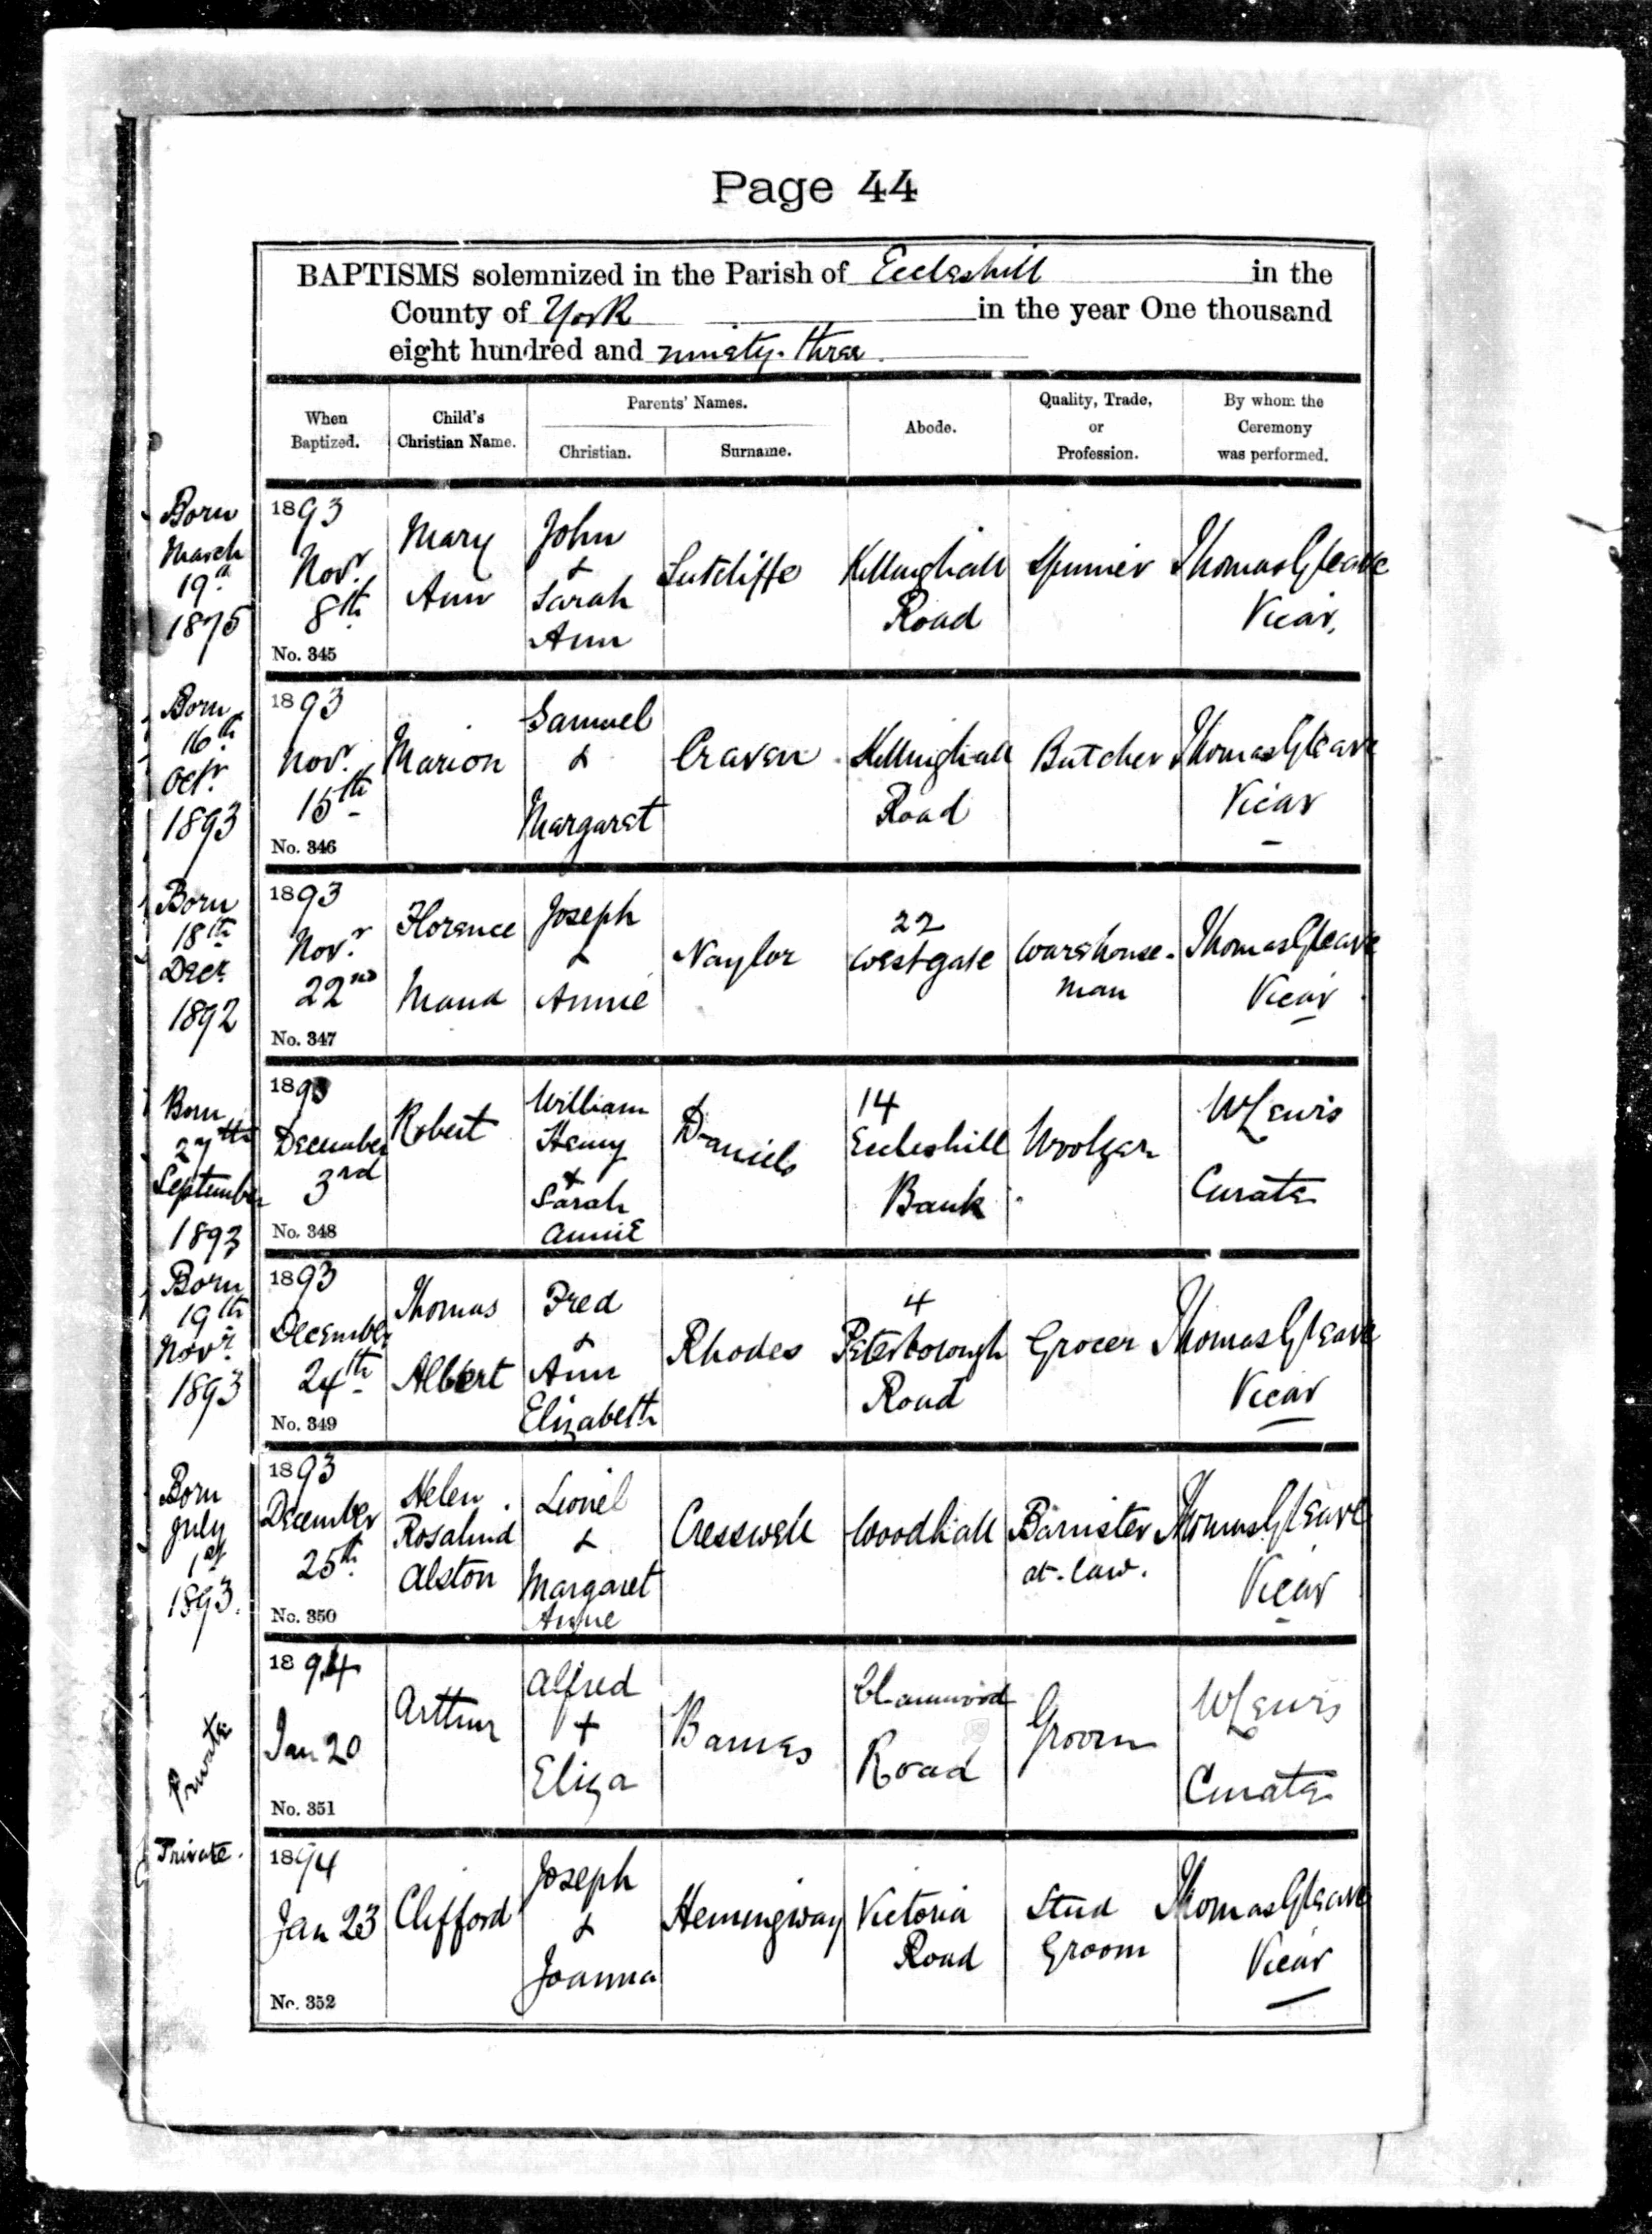 Page 44
BAPTISMS solemnized in the Parish of Eccleshill in the
County of York in the year One thousand
eight hundred and ninety-three.
When Baptized.
Child's Christian Name.
Parents' Names.
Christian.
Surname.
Abode.
Quality, Trade, or Profession.
By whom the Ceremony was performed.
Born March 19th 1875
1893 Nov.r 8th
No. 345
Mary Ann
John & Sarah Ann
Sutcliffe
Killinghall Road
Spinner
Thomas Gleave Vicar.
Born 16th Octr. 1893
1893 Nov.r 15th
No. 346
Marion
Samuel & Margaret
Craven
Killinghall Road
Butcher
Thomas Gleave Vicar
Born 18th Decr. 1892
1893 Nov.r 22nd
No. 347
Florence Maud
Joseph & Annie
Naylor
22 Westgate
Warehouse-man
Thomas Gleave Vicar
Born 27th September 1893
1893 December 3rd
No. 348
Robert
William Henry & Sarah Annie
Daniels
14 Eccleshill Bank
W Lewis Curate
Born 19th Novr. 1893
1893 December 24th
No. 349
Thomas Albert
Fred & Ann Elizabeth
Rhodes
4 Peterborough Road
Grocer
Thomas Gleave Vicar
Born July 1st 1893.
1893 December 25th
No. 350
Helen Rosalind Alston
Lionel & Margaret Anne
Cresswell
Woodhall
Barrister at-law.
Thomas Gleave Vicar
Private
1894 Jan 20
No. 351
Arthur
Alfred + Eliza
Barnes
Road
Groom
W Lewis Curate
Private.
1894 Jan 23
No. 352
Clifford
Joseph & Joanna
Hemingway
Victoria Road
Stud Groom
Thomas Gleave Vicar